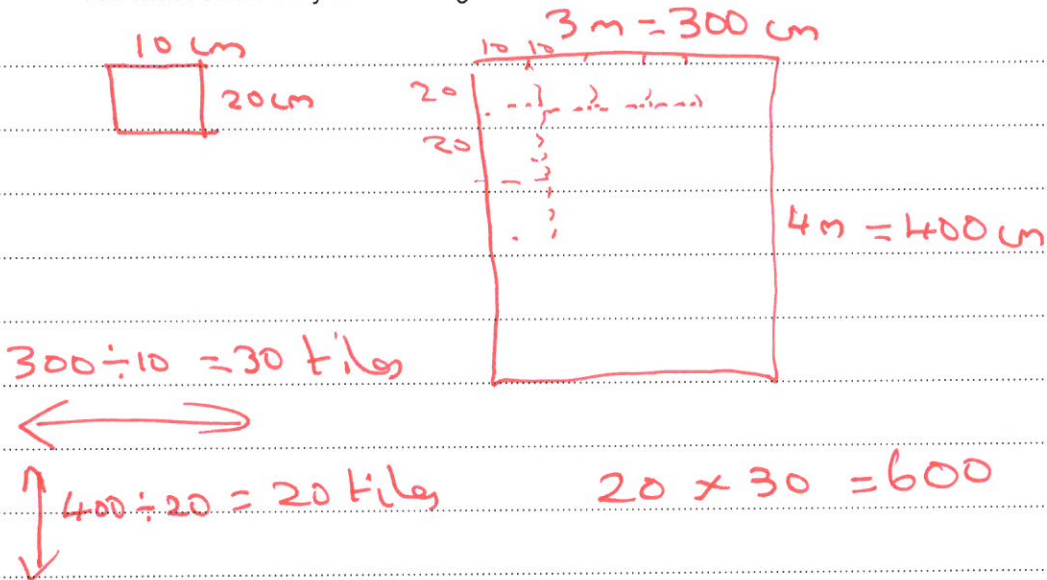 3 m = 300 cm
10 cm
10 10
20 cm
20
20
4 m = 400 cm
300 ÷ 10 = 30 tiles
400 ÷ 20 = 20 tiles
20 × 30 = 600